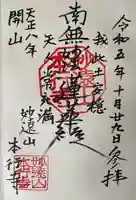 令和五年十月廿九日参拝
我此土安穏
南無妙法蓮華経
天人常充満
天正八年
開山
妙遠山
本行寺